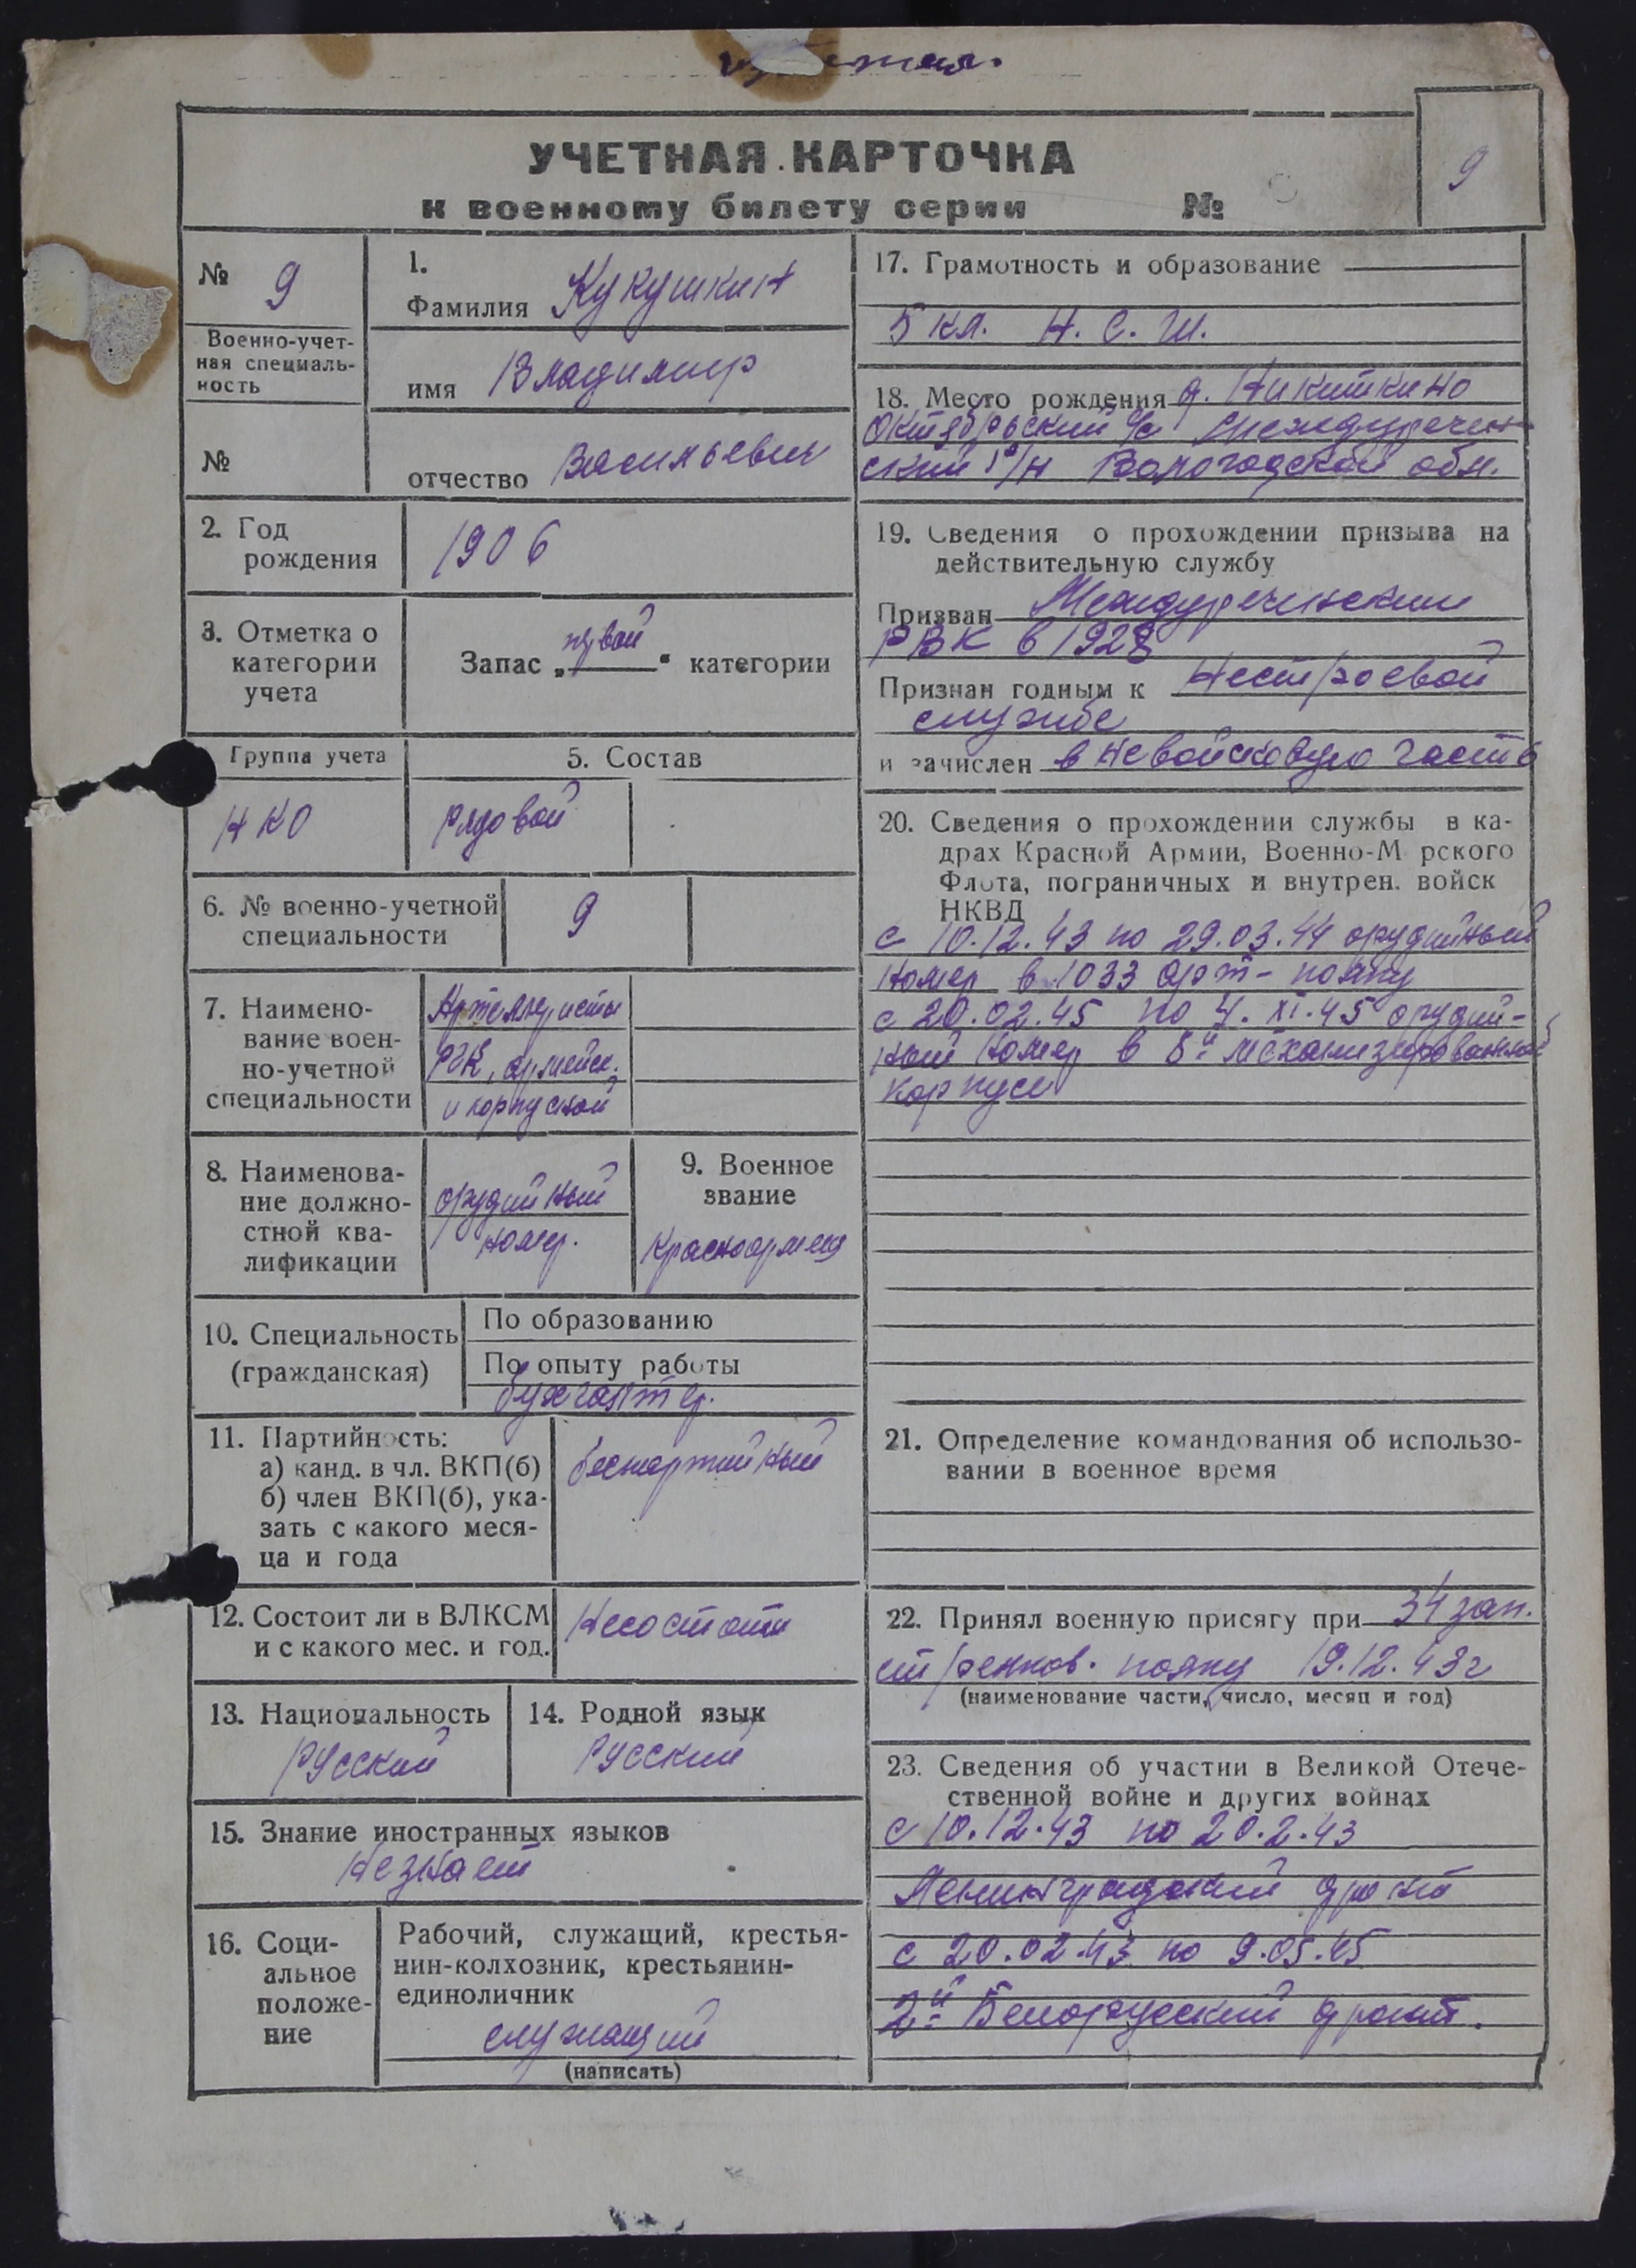 УЧЕТНАЯ КАРТОЧКА
к военному билету серии №
9
№ 9
Военно-учет-
ная специаль-
ность
№
1.
Фамилия Кукушкин
имя Владимир
отчество Васильевич
2. Год
рождения
1906
3. Отметка о
категории
учета
Запас „первой“ категории
Группа учета
НКО
5. Состав
рядовой
6. № военно-учетной
специальности
9
7. Наимено-
вание воен-
но-учетной
специальности
Артеллеристы
РГК, армейск.
и корпусной
8. Наименова-
ние должно-
стной ква-
лификации
орудийный
номер.
9. Военное
звание
Красноармеец
10. Специальность
(гражданская)
По образованию
По опыту работы
бухгалтер.
11. Партийность:
а) канд. в чл. ВКП(б)
б) член ВКП(б), ука-
зать с какого меся-
ца и года
беспартийный
12. Состоит ли в ВЛКСМ
и с какого мес. и год.
Несостоит
13. Национальность
Русский
14. Родной язык
Русский
15. Знание иностранных языков
Незнает
16. Соци-
альное
положе-
ние
Рабочий, служащий, крестья-
нин-колхозник, крестьянин-
единоличник
служащий
(написать)
17. Грамотность и образование
5 кл. Н. С. Ш.
18. Место рождения д. Никиткино
Октябрьский с/с Междуречен-
ский р/н Вологодской обл.
19. Сведения о прохождении призыва на
действительную службу
Призван Междуреченским
РВК в 1928
Признан годным к Нестроевой
службе
и зачислен в невойсковую часть
20. Сведения о прохождении службы в ка-
драх Красной Армии, Военно-М рского
Флота, пограничных и внутрен. войск
НКВД
с 10.12.43 по 29.03.44 орудийный
номер в 1033 Арт- полку
с 20.02.45 по 4.XI.45 орудий-
ный номер в 8й механизированной
корпусе
21. Определение командования об использо-
вании в военное время
22. Принял военную присягу при 34 зап.
стрелков. полку 19.12.43г
(наименование части, число, месяц и год)
23. Сведения об участии в Великой Отече-
ственной войне и других войнах
с 10.12.43 по 20.2.43
Ленинградский фронт
с 20.02.43 по 9.05.45
2й Белорусский фронт.